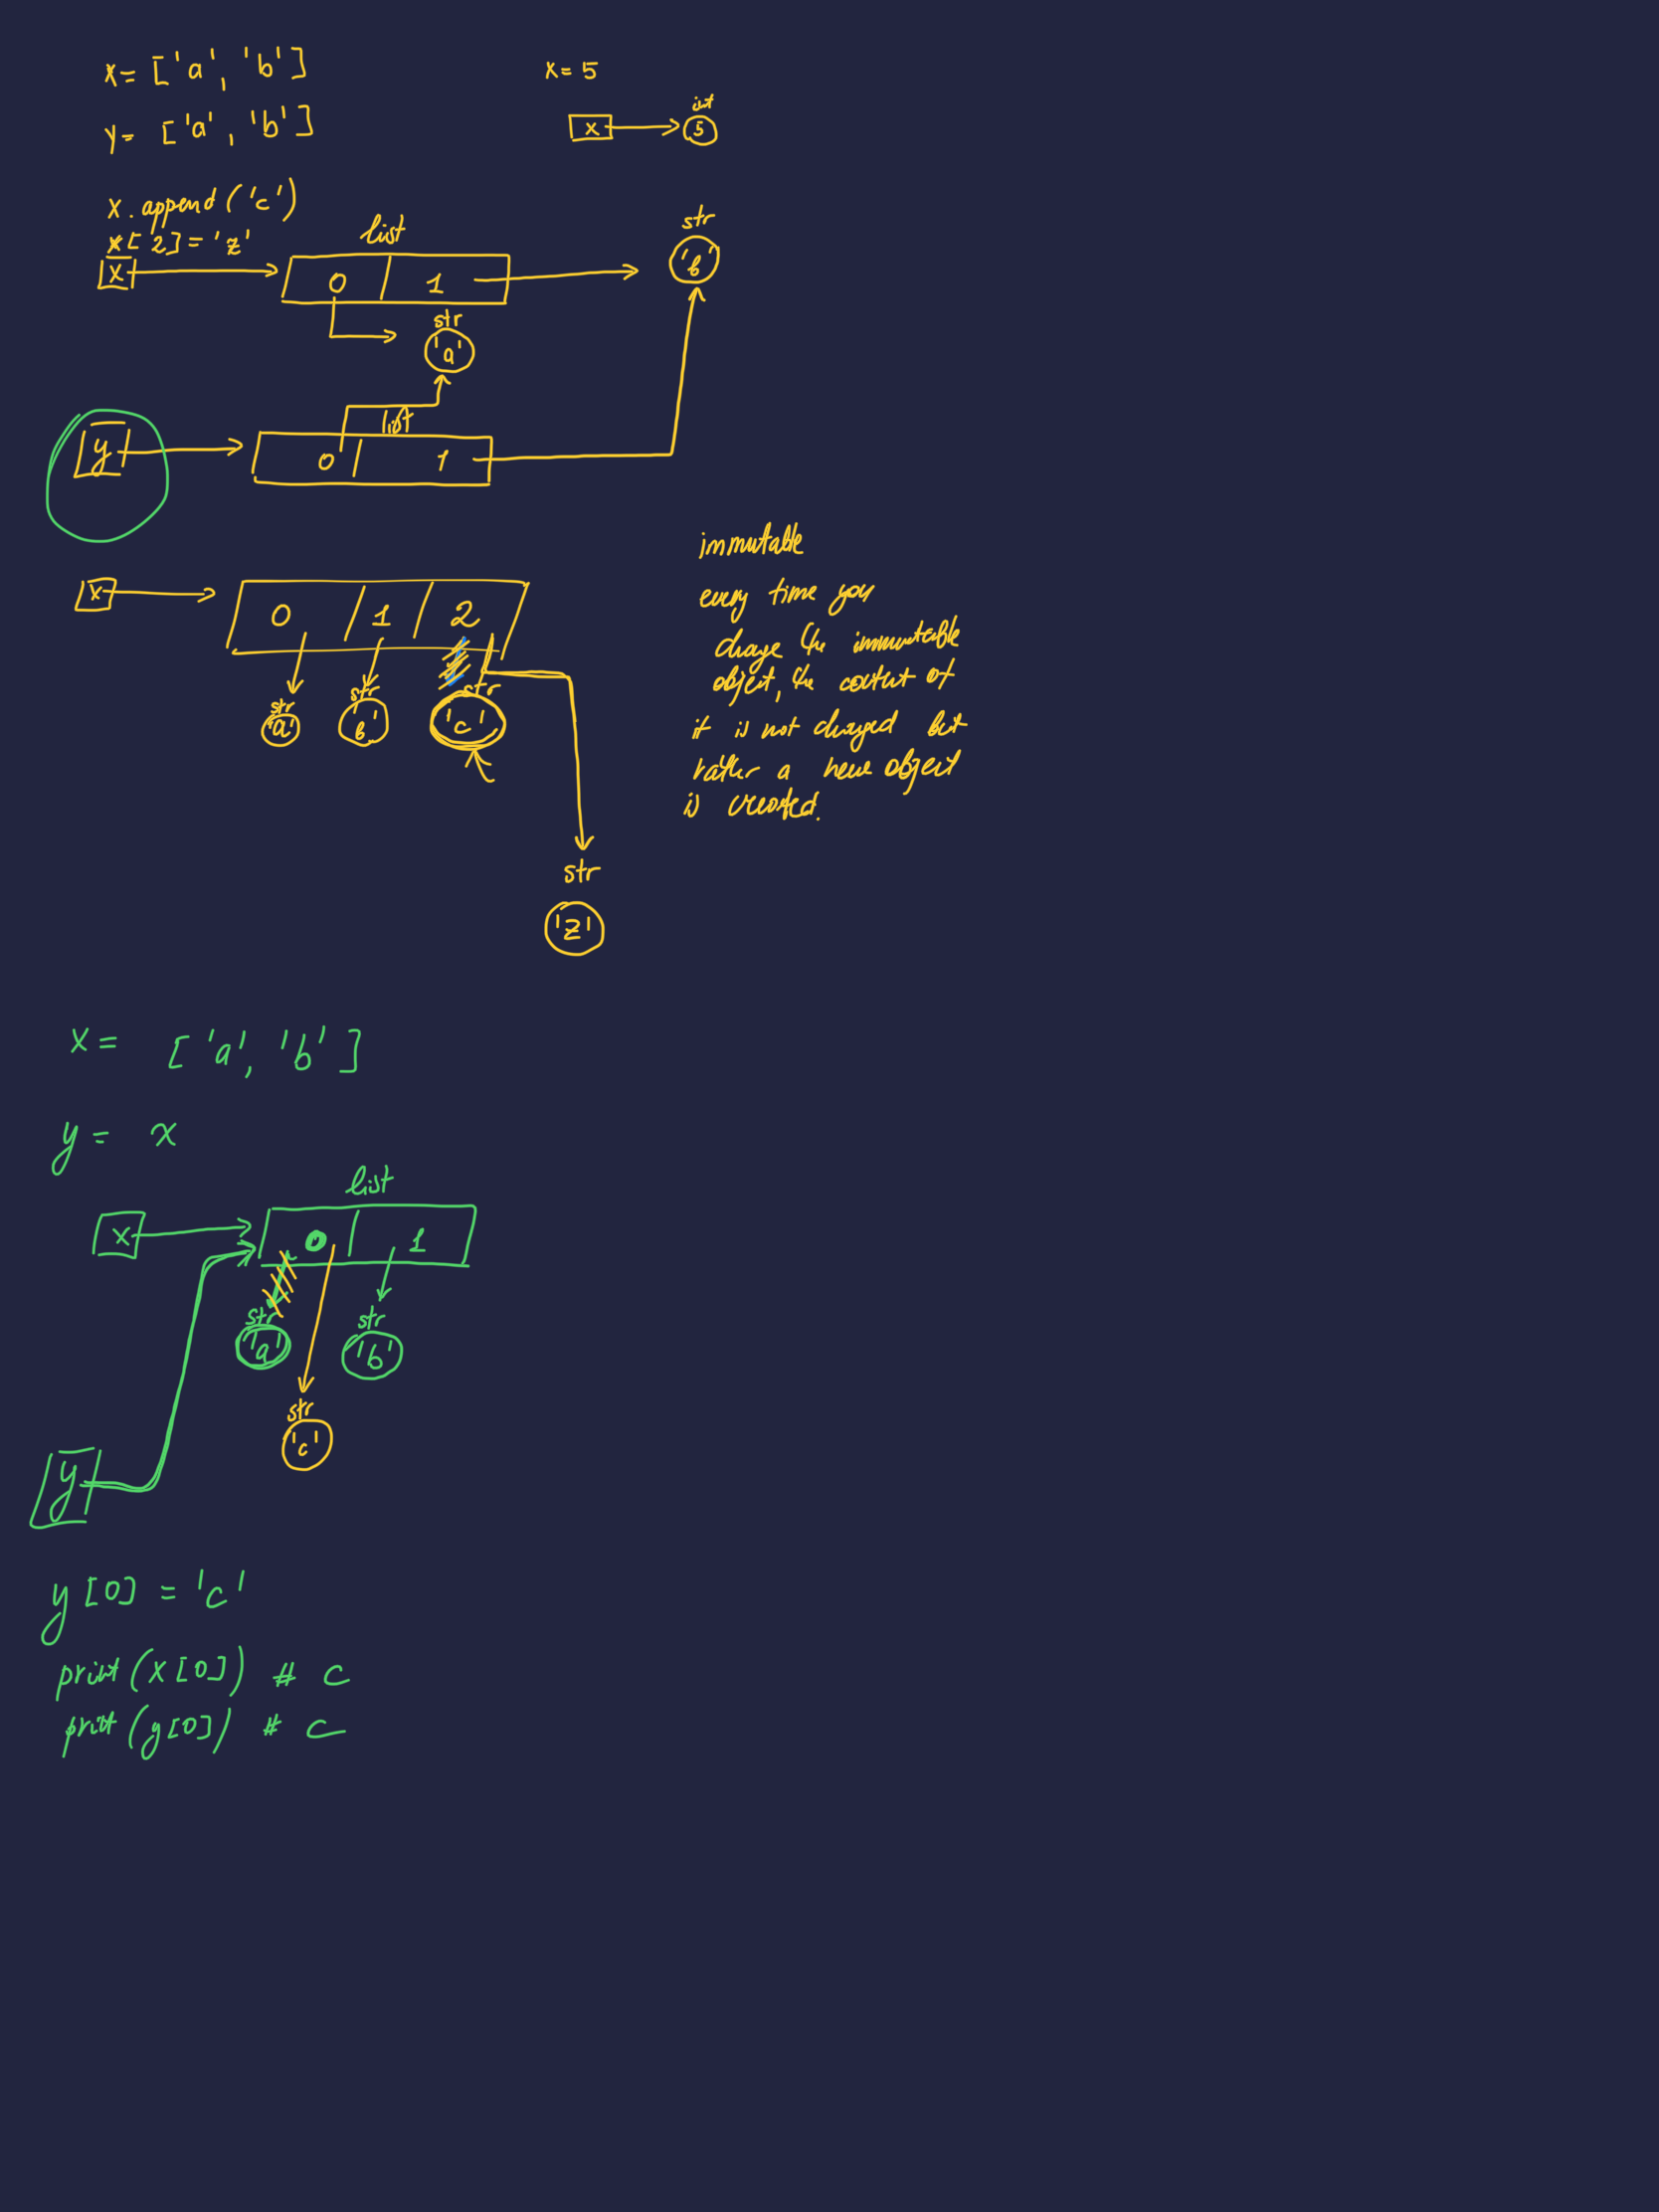 x = ['a', 'b']
y = ['a', 'b']
x.append('c')
x[2] = 'z'
x = 5
x
int
5
x
list
0 1
str
'b'
str
'a'
y
list
0 1
x
0 1 2
str
'a'
str
'b'
str
'c'
str
'z'
immutable
every time you
change the immutable
object, the content of
it is not changed but
rather a new object
is created.
x = ['a', 'b']
y = x
list
x
0 1
str
'a'
str
'b'
str
'c'
y
y[0] = 'c'
print(x[0]) # c
print(y[0]) # c